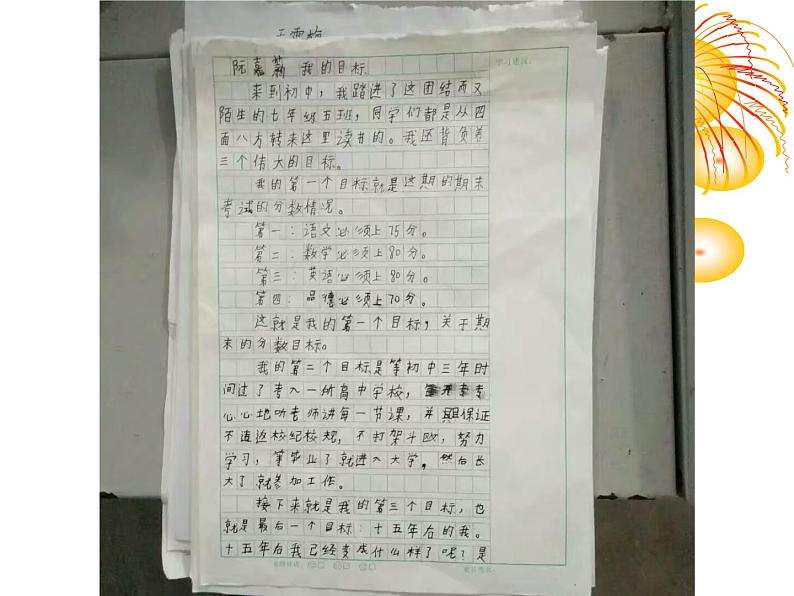 阮嘉 我的目标
来到初中，我踏进了这团结而又
陌生的七年级五班，同学们都是从四
面八方转来这里读书的。我还背负着
三个伟大的目标。
我的第一个目标就是这期的期末
考试的分数情况。
第一：语文必须上75分。
第二：数学必须上80分。
第三：英语必须上80分。
第四：品德必须上70分。
这就是我的第一个目标，关于期
末的分数目标。
我的第二个目标是等初中三年时
间过了考入一所高中学校，专
心心地听老师讲每一节课，并且保证
不违返校纪校规，不打架斗殴，努力
学习，等毕业了就进入大学，然后长
大了就参加工作。
接下来就是我的第三个目标，也
就是最后一个目标：十五年后的我。
十五年后我已经变成什么样了呢？是
学习建议：